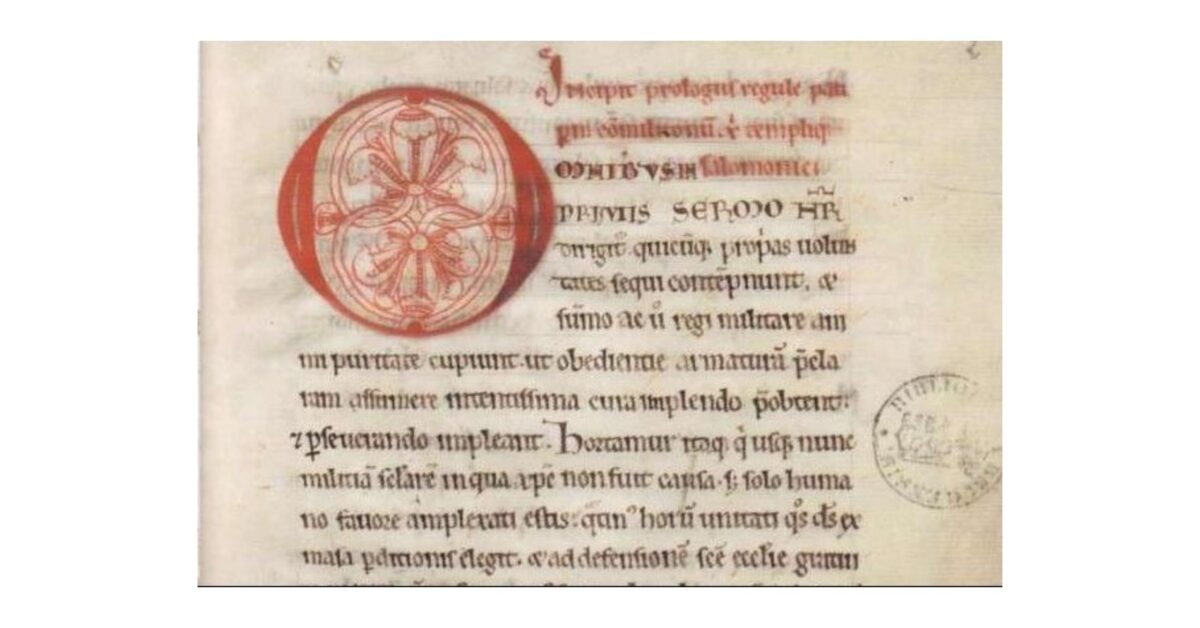 Incipit prologus regule pau
pm cōmilitonū. templiq
OMNIBVS IN salomonici
PRIMIS SERMO NR̄
dirigit᷒. quicūq; prop̲as uolun
tates sequi contēpnunt. &
sūmo ac ů regi militare ani
mi puritate cupiunt. ut obedientie armaturā p̄cla
ram assumere intentissima cura implendo p̄obtent:
⁊ ꝑseuerando impleant. Hortamur itaq; q̇ usq; nunc
militiā sclarē in qua xp̄c non fuit causa. s; solo huma
no fauore amplexati estis: q̄tin᷒ horū unitati q̊s d̄s ex
massa ꝑditionis elegit. & ad defensionē scē ecclie
BIBLIO